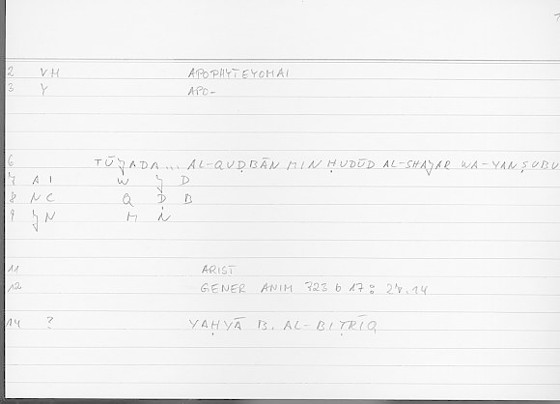 2 VM APOPHYTEYOMAI
3 Y APO-
6 TŪǦADA... AL-QUḌBĀN MIN ḤUDŪD AL-SHAǦAR WA-YANṢUBU
7 A I W Ǧ D
8 NC Q Ḍ B
9 ǦN M N
11 ARIST
12 GENER ANIM 723 b 17: 28.14
14 ? YAḤYĀ B. AL-BIṬRĪQ